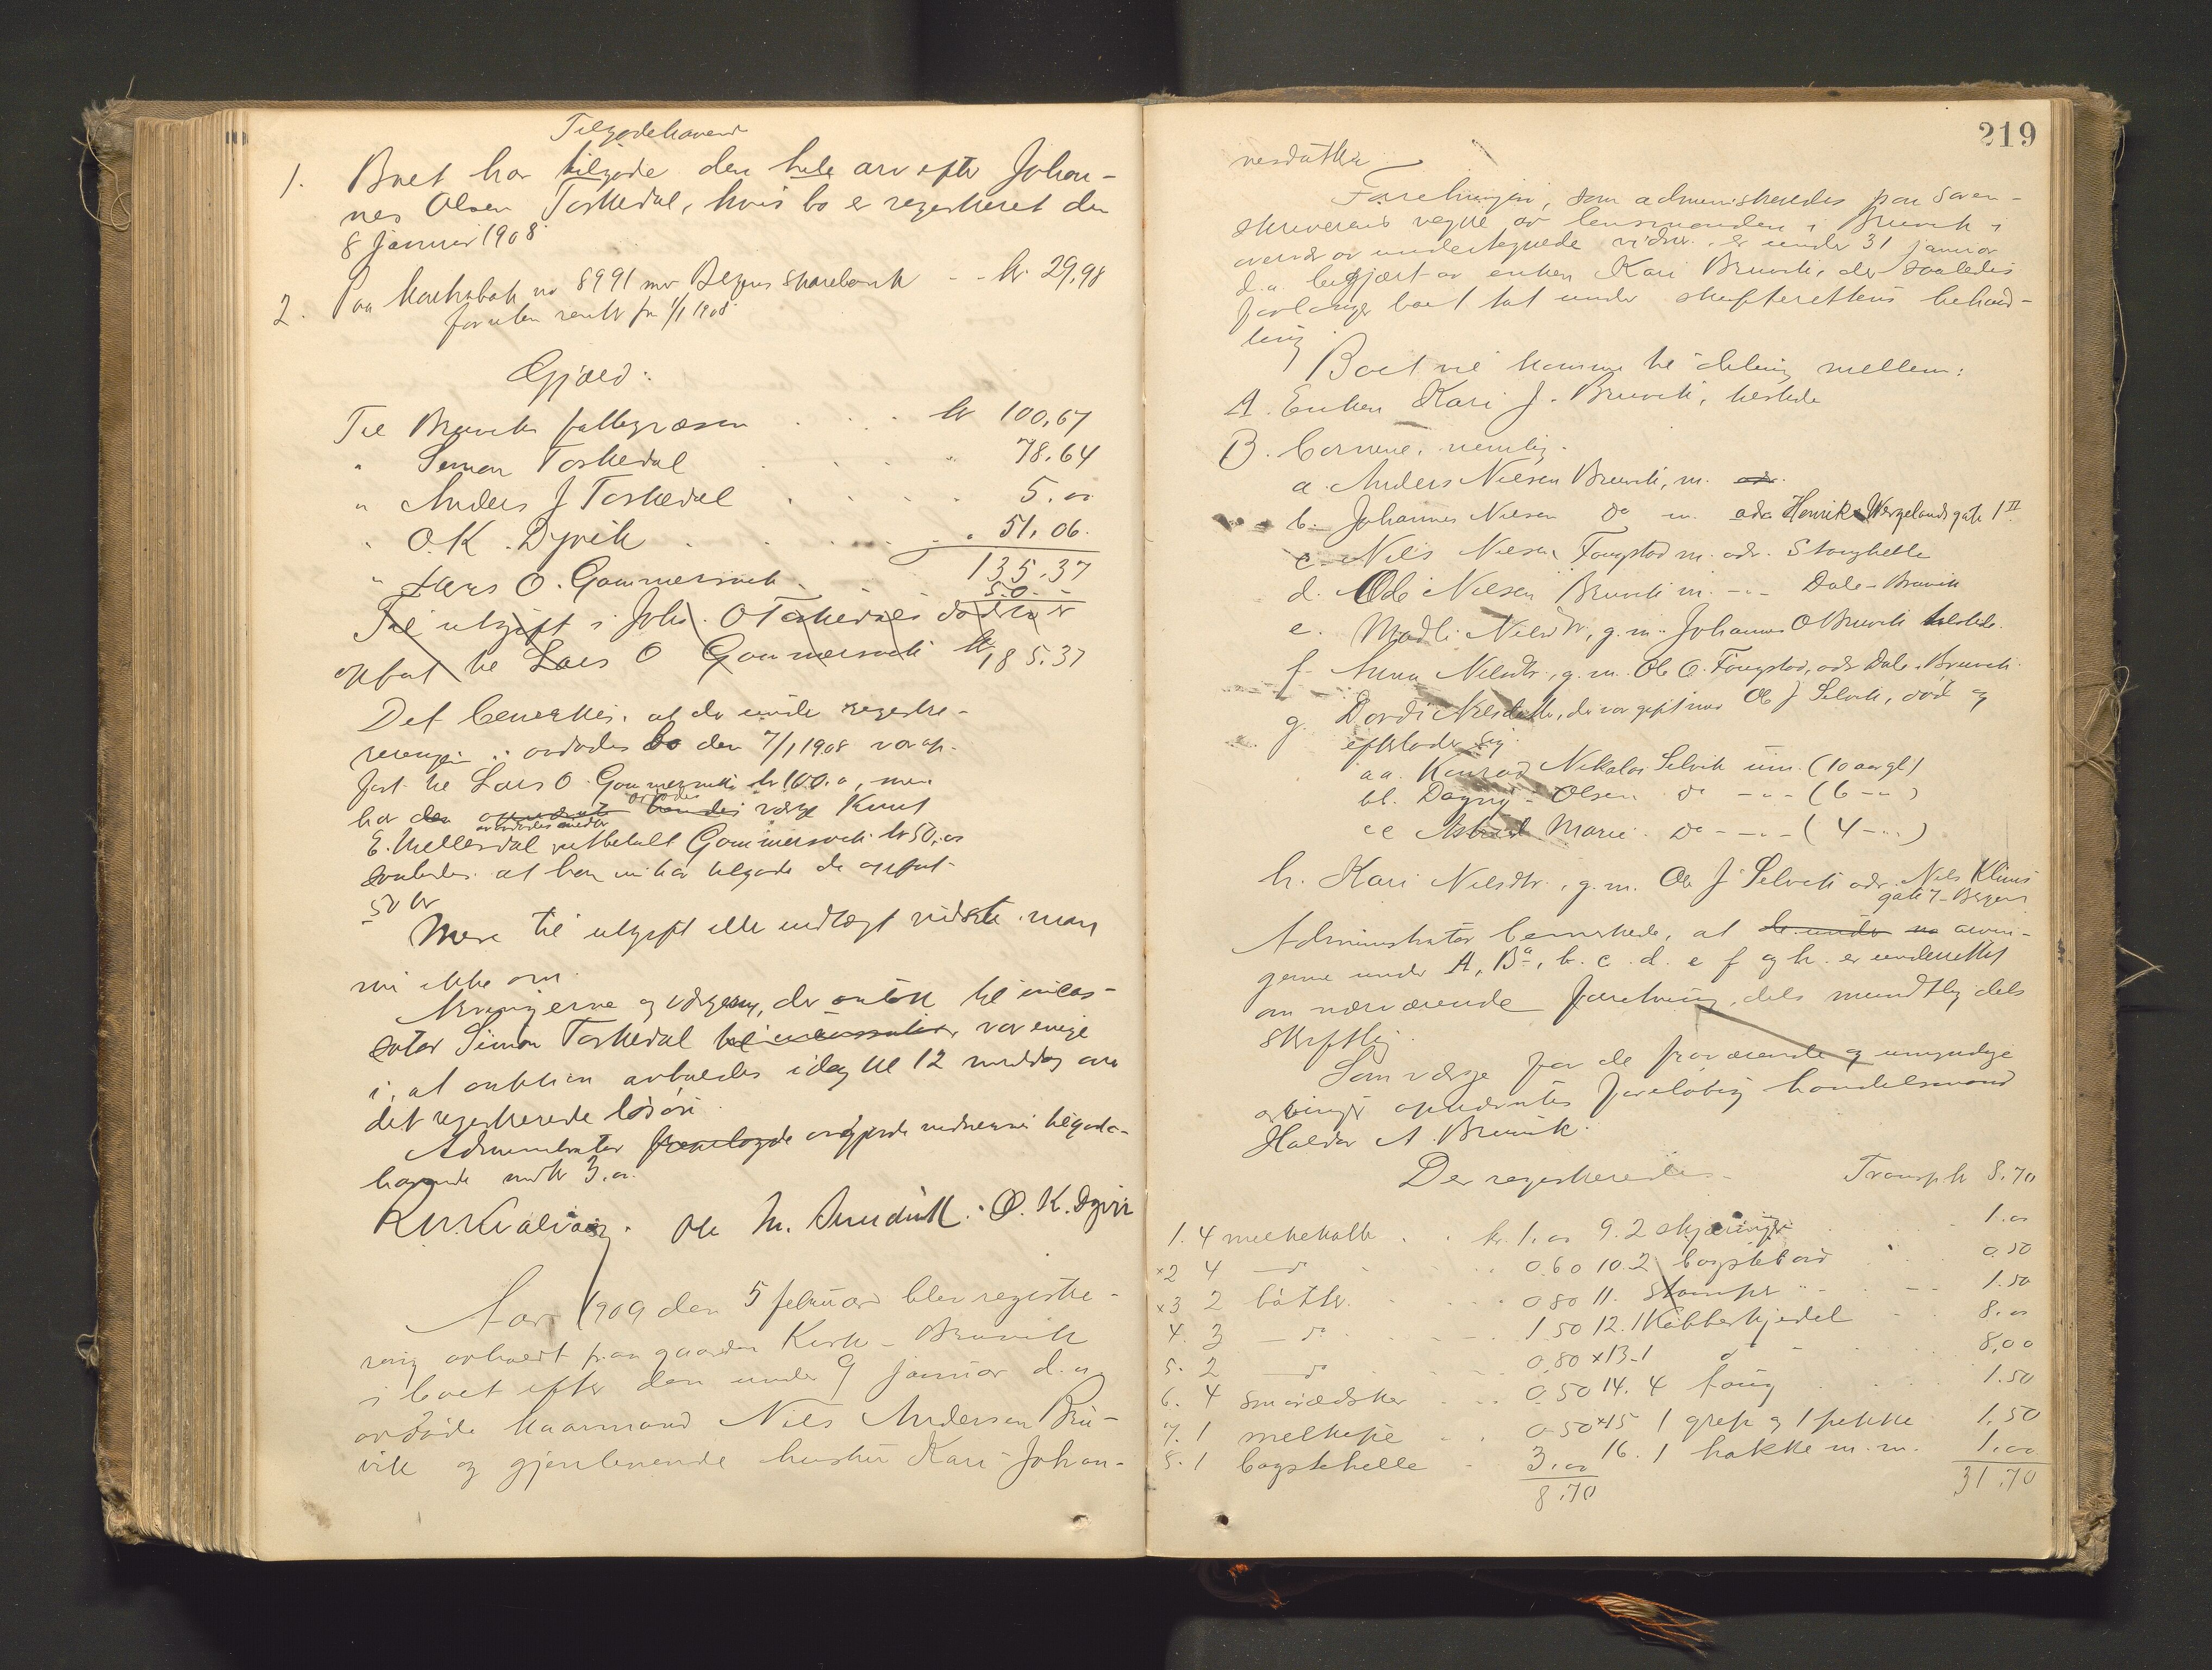 Tilgodehavend
1. Boet har tilgode den hele arv efter Johan-
nes Olsen Toskedal, hvis bo er registreret den
8 januar 1908
2. Paa Kontrabok no 8991 mv Bergens Sparebank -- kr. 29,98
foruten renter fra 1/1 1908
Gjæld:
Til Bruvik fattigvæsen . . . kr 100,67
" Simon Toskedal . . . . " 78.64
" Anders J Toskedal . . . . 5.00
" O.K. Dyvik . . . . . 51.06.
" Lars O. Gammersvik . 135.37
50.-
Til utgift i Johs. O Toskedals dødsbo er
opført til Lars O Gammersvik kr 185.37
Det bemerkes, at da under registre-
reringen i avdødes bo den 7/1 1908 var op-
ført til Lars O. Gammersvik kr 100.0, men
har den avdødes værge Knut
avdødes midler
E. Mellesdal utbetalt Gammersvik kr 50,00
saaledes at han nu har tilgode de opført
50 kr
Mere til utgift eller indtægt vidste man
nu ikke om.
Arvingerne og værgerne, der antok til incas-
sator Simon Toskedal til incassator, var enige
i, at auktion avholdes idag kl 12 middag over
det registrerede løsøre.
Administrator fremlagde avgjorde vidnernes tilgode-
havende med kr 3.00.
R.M. Kvalvaag. Ole M. Amdink. O. K. Dyvik
Aar 1909 den 5 februar blev registre-
ring avholdt paa gaarden Kirk-Bruvik
i boet efter den under 9 januar d.a
avdøde kaarmand Nils Andersen Bru-
vik og gjenlevende hustru Kari Johan-
219
nesdatter
Forretningen, som administreredes paa Soren-
skriverens vegne av lensmanden i Bruvik i
overvær av undertegnede vidner, er under 31 januar
d.a. begjært av enken Kari Bruvik, der saaledes
forlanger boet tat under skifterettens behand-
ling
Boet vil komme til deling mellem:
A. Enken Kari J. Bruvik, herstede
B. børnene, nemlig.
a. Anders Nilsen Bruvik, m. adr.
b. Johannes Nilsen do m. adr Henrik Wergelandsgate 1 II
c. Nils Nilsen Fougstad m. adr. Stanghelle
d. Ole Nilsen Bruvik m. -"- Dale - Bruvik
e. Madli Nilsdtr, g.m. Johannes O Bruvik herstede.
f. Anna Nilsdtr., g.m. Ole O. Fougstad, adr Dale, Bruvik.
g. Dordi Nilsdatter, der var gift med Ole J Selvik, død og
efterlader sig.
aa. Konrad Nikolai Selvik um. (10 aar gl)
bb. Dagny Olsen do -"- (6 -"-)
cc Astrid Marie do -"- (4 -"-)
h. Kari Nilsdtr., g.m. Ole J Selvik adr. Nils Klims
gate 7 - Bergen
Administrator bemerkede, at de under no arvin-
gerne under A, Ba, b. c. d. e f og h. er underrettet
om nærværende forretning, dels mundtlig dels
skriftlig.
Som værge for de fraværende og umyndige
arvinger opnævntes foreløbig handelsmand
Haldor A. Bruvik.
Der registreredes. Transp. kr 8.70
1. 4 melkekolle . . kr. 1.00 9. 2 skjæringer . . . 1.00
x2 4 -do- . . . 0.60 10. 2 bagstebord . . 0.50
x3 2 bøtter. . . . 0.80 11. Stamper " -- 1.50
4. 3 -do- . . . 1.50 12. 1 Kobberkjedel . . 8.00
5. 2 -do- . . . 0.80 x13. 1 do - . 8,00
6. 4 smørædsker . . . 0.50 14. 4 faug . . . 1.50
7. 1 melkesie . . . 0.50 x15 1 grep og 1 pekke 1.50
8. 1 bagstehelle - 3.00 16. 1 hakke m.m. 1.00
8.70 31.70